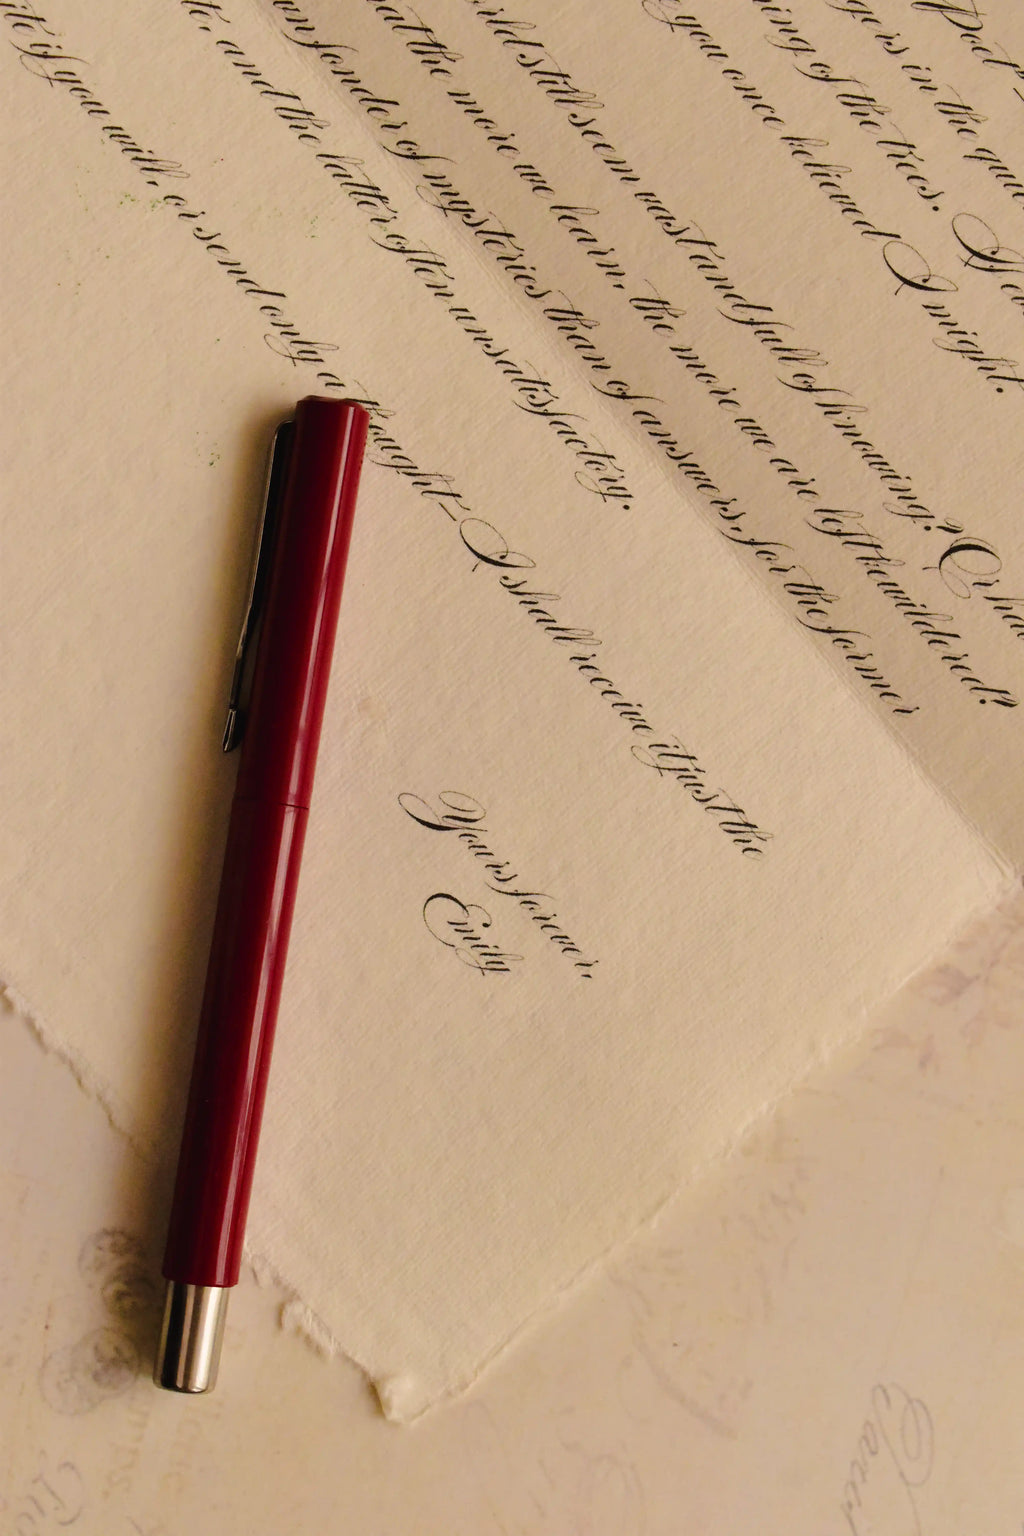 in the
of the trees.
you once believed I might.
still seem vast and full of knowing? Or
the more we learn, the more we are left bewildered?
fonder of mysteries than of answers, for the former
and the latter often unsatisfactory.
if you will, or send only a thought– I shall receive it just the
Yours forever,
Emily